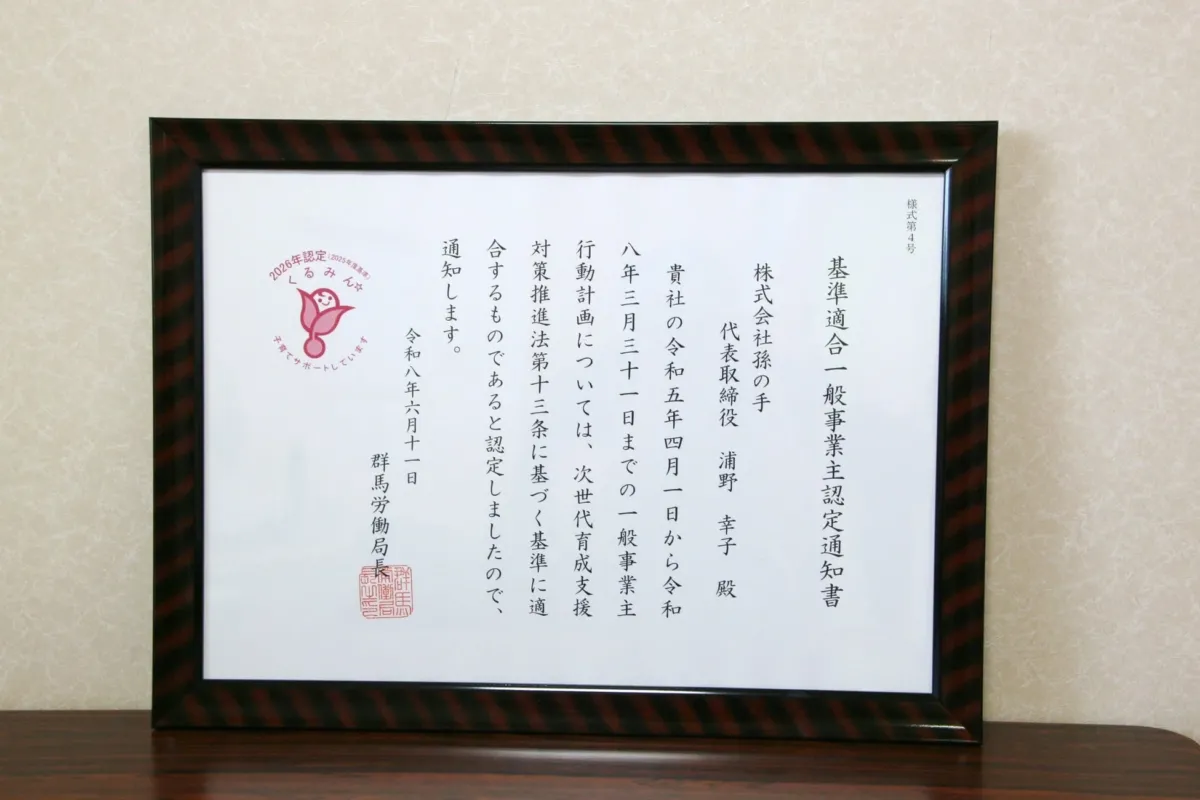 様式第4号
基準適合一般事業主認定通知書
株式会社孫の手
代表取締役 浦野 幸子 殿
貴社の令和五年四月一日から令和
八年三月三十一日までの一般事業主
行動計画については、次世代育成支援
対策推進法第十三条に基づく基準に適
合するものであると認定しましたので、
通知します。
令和八年六月十一日
群馬労働局長
群馬
労働局
長之印
2026年認定(2025年度基準)
くるみん☆
子育てサポートしています